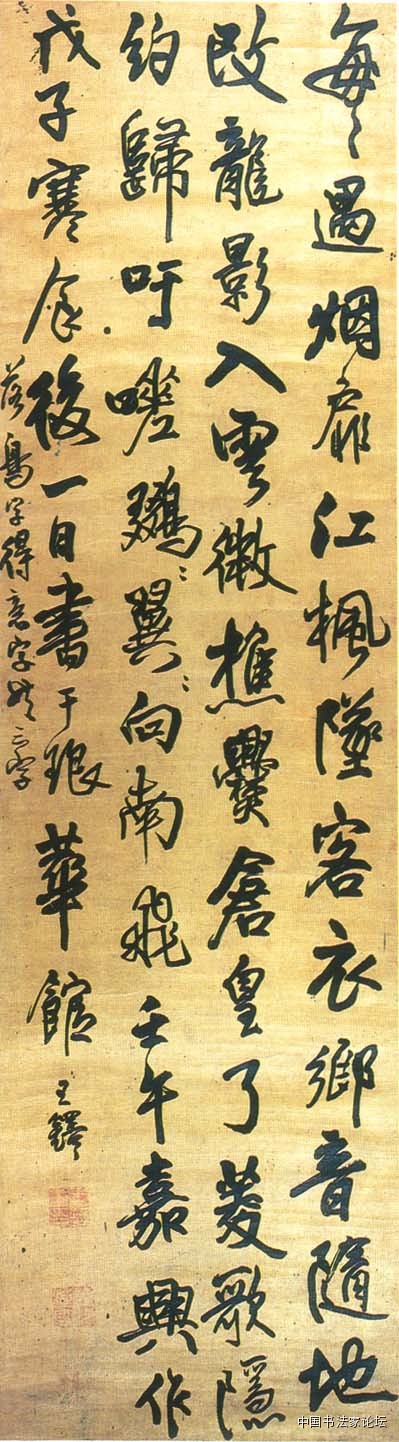 每〻遇烟扉江楓墜客衣鄉音隨地
改龍影入雲微樵爨倉皇了菱歌隱
約歸吁嗟翼向南飛壬午嘉興作
戊子寒食後一日書于琅華館王鐸
落鳥字得意字字
中国书法家论坛